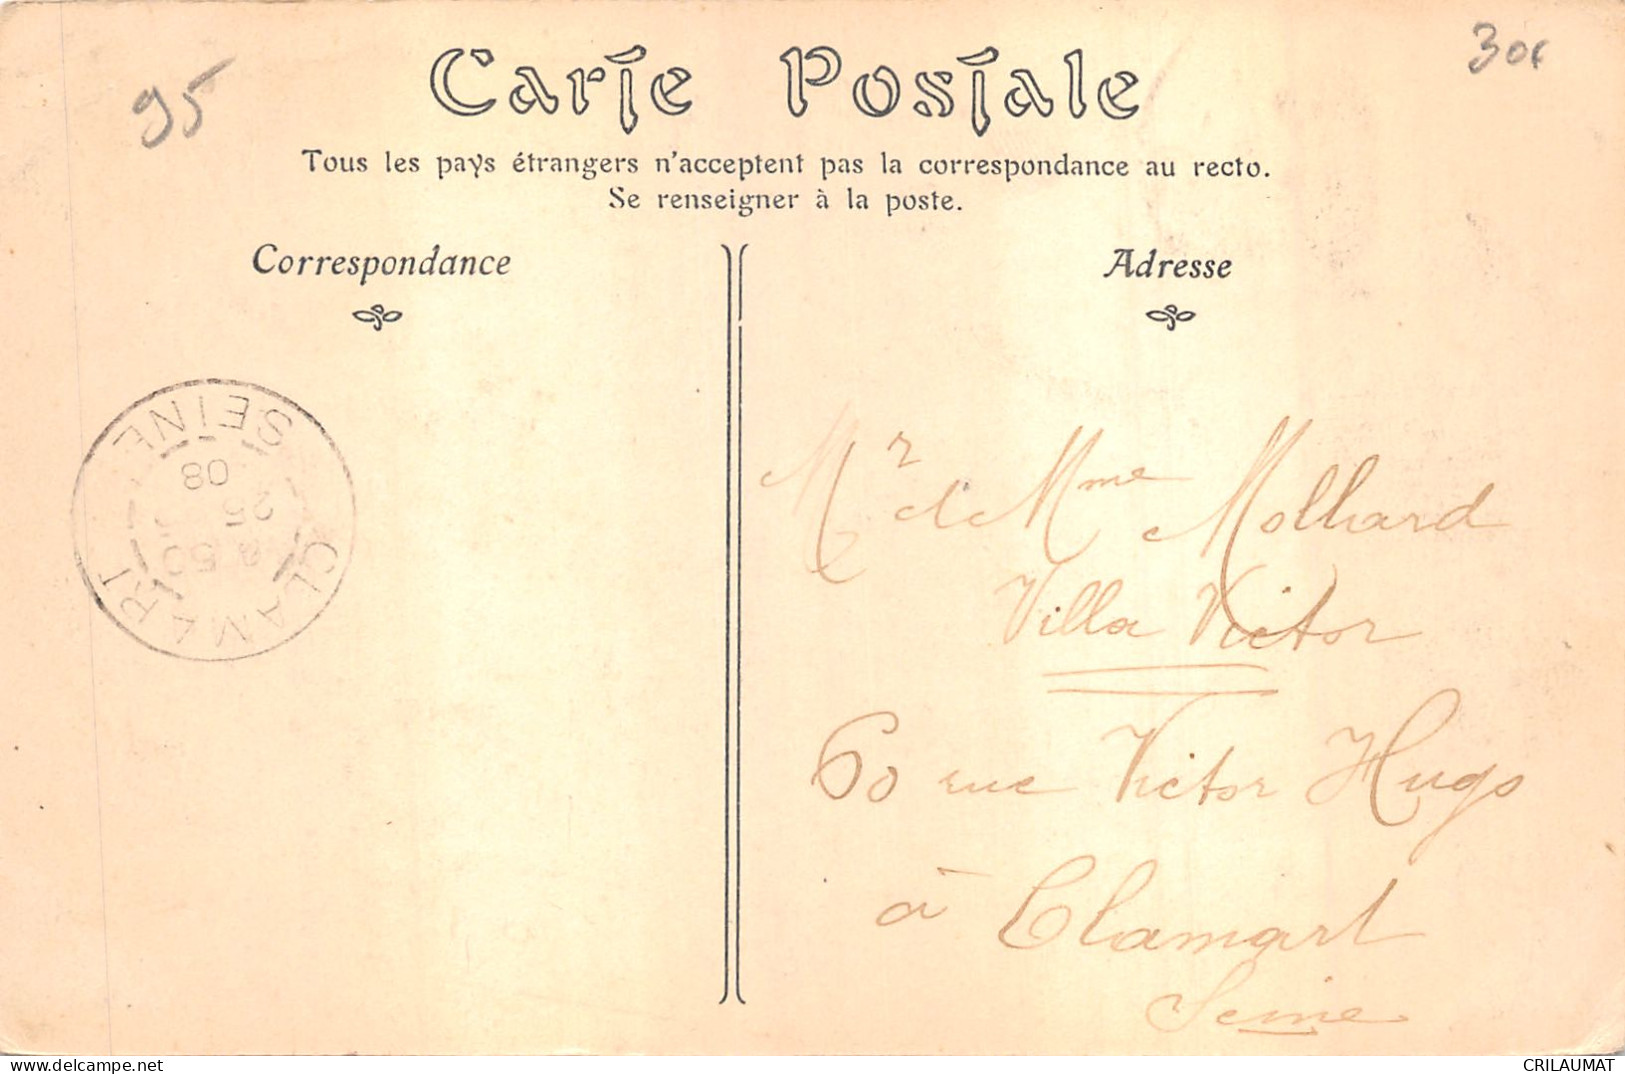 95
30€
Carte Postale
Tous les pays étrangers n'acceptent pas la correspondance au recto.
Se renseigner à la poste.
Correspondance
Adresse
CLAMART
SEINE
50
25
08
Mr et Mme Molhard
Villa Victor
60 rue Victor Hugo
à Clamart
Seine
https://www.delcampe.net
CRILAUMAT